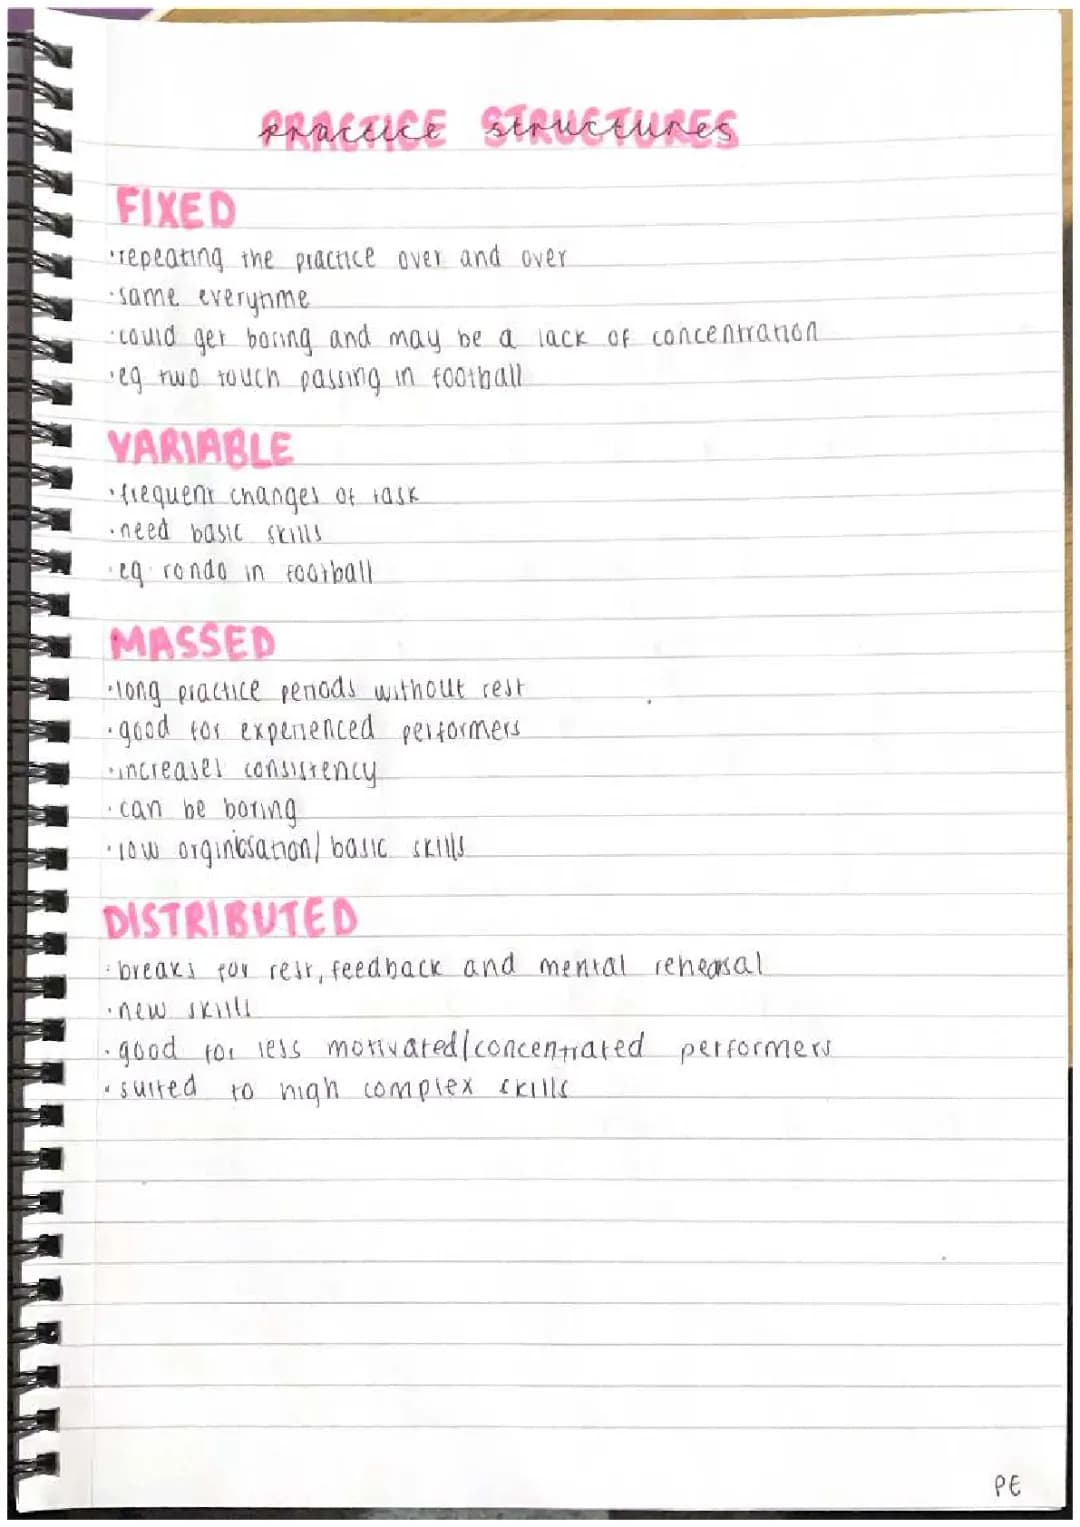 PRACTICE STRUCTURES
FIXED
·repeating the practice over and over
·same everytime
·could get boring and may be a lack of concentration
·eg two touch passing in football
VARIABLE
·frequent changes of task
·need basic skills
·eg rondo in football
MASSED
·long practice periods without rest
·good for experienced performers
·increases consistency
·can be boring
·low orginisation/basic skills
DISTRIBUTED
·breaks for rest, feedback and mental rehearsal
·new skills
·good for less motivated/concentrated performers
·suited to high complex skills
PE